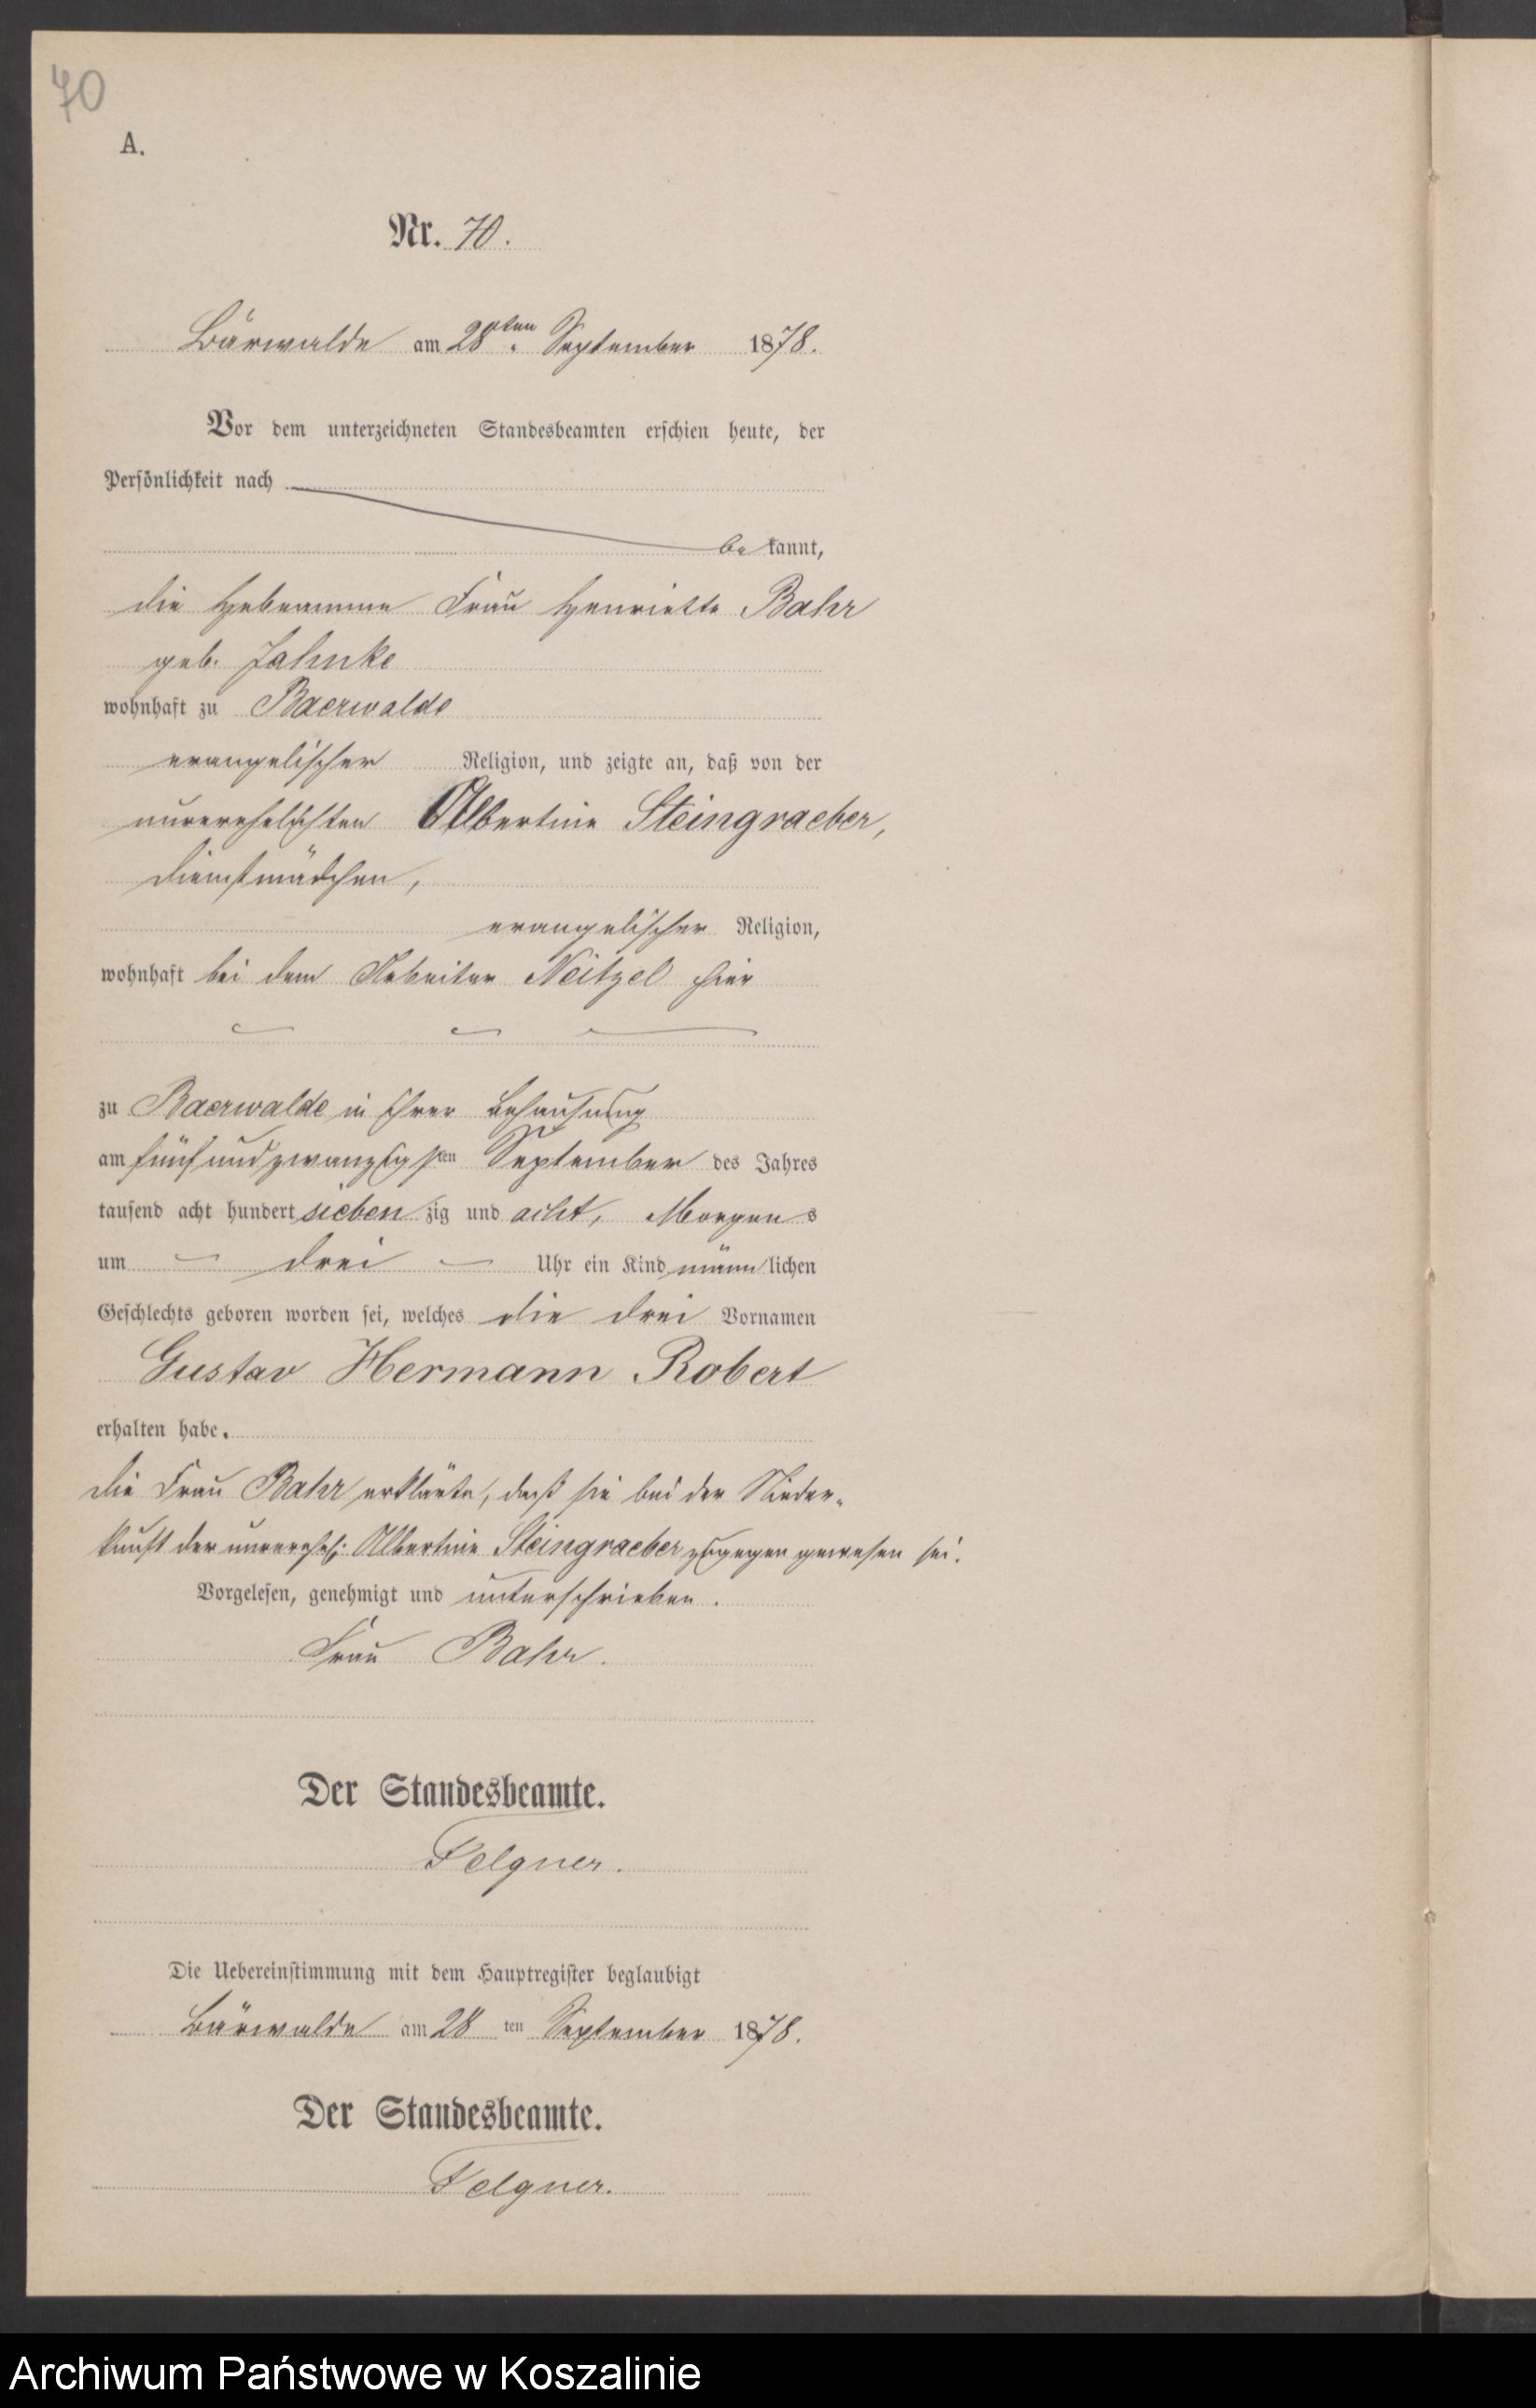 70
A.
Nr. 70.
Bärwalde am 28ten September 1878.
Vor dem unterzeichneten Standesbeamten erschien heute, der
Persönlichkeit nach
be kannt,
die Hebeamme Frau Henriette Bahr
geb. Jahnke
wohnhaft zu Baerwalde
evangelischer Religion, und zeigte an, daß von der
unverehelichten Albertine Steingraeber,
Dienstmädchen,
evangelischer Religion,
wohnhaft bei dem Arbeiter Neitzel hier
zu Baerwalde in ihrer Behausung
am fünf und zwanzigsten September des Jahres
tausend acht hundert sieben zig und acht, Morgens
um drei Uhr ein Kind männ lichen
Geschlechts geboren worden sei, welches die drei Vornamen
Gustav Hermann Robert
erhalten habe.
Die Frau Bahr erklärte, daß sie bei der Nieder-
kunft der unverehel: Albertine Steingraeber zugegen gewesen sei.
Vorgelesen, genehmigt und unterschrieben.
Frau Bahr.
Der Standesbeamte.
Felgner.
Die Uebereinstimmung mit dem Hauptregister beglaubigt
Bärwalde am 28 ten September 1878.
Der Standesbeamte.
Felgner.
Archiwum Państwowe w Koszalinie